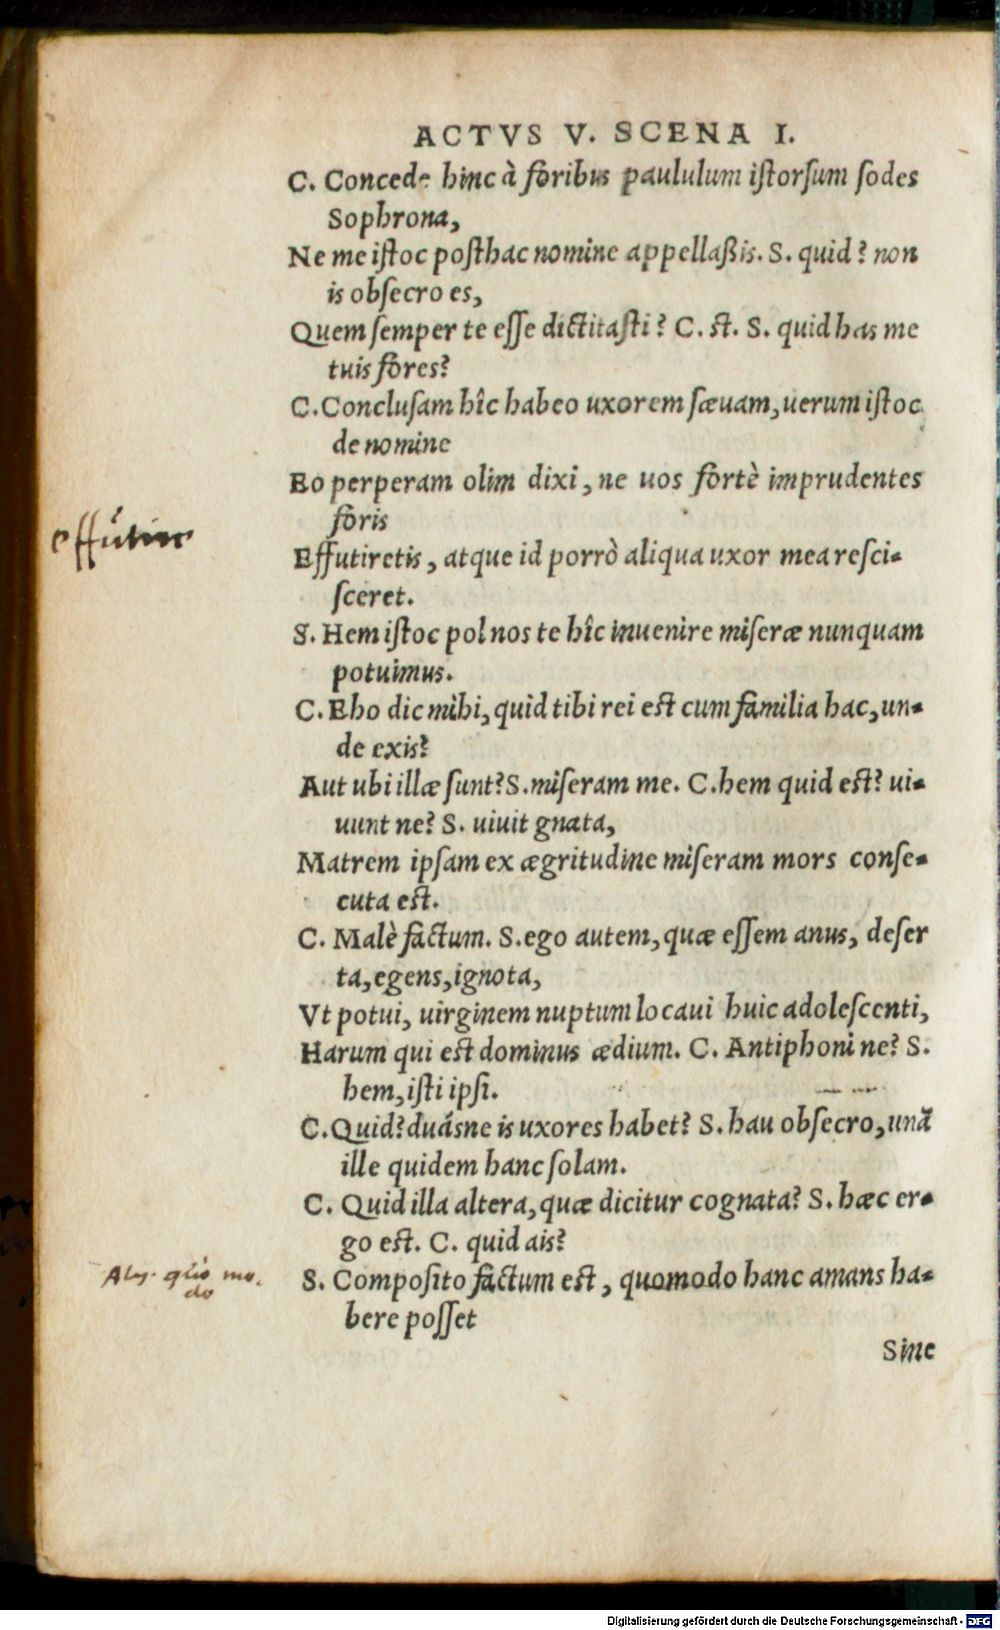 ACTVS V. SCENA I.
C. Concede hinc à foribus paululum istorsum sodes
Sophrona,
Ne me istoc posthac nomine appellaßis. S. quid? non
is obsecro es,
Quem semper te esse dictitasti? C. st. S. quid has me
tuis fores?
C. Conclusam hîc habeo uxorem sæuam, uerum istoc
de nomine
Eo perperam olim dixi, ne uos fortè imprudentes
foris
effûtire
Effutiretis, atque id porrò aliqua uxor mea resci-
sceret.
S. Hem istoc pol nos te hîc inuenire miseræ nunquam
potuimus.
C. Eho dic mihi, quid tibi rei est cum familia hac, un-
de exis?
Aut ubi illæ sunt? S. miseram me. C. hem quid est? ui-
uunt ne? S. uiuit gnata,
Matrem ipsam ex ægritudine miseram mors conse-
cuta est.
C. Malè factum. S. ego autem, quæ essem anus, deser
ta, egens, ignota,
Vt potui, uirginem nuptum locaui huic adolescenti,
Harum qui est dominus ædium. C. Antiphoni ne? S.
hem, isti ipsi.
C. Quid? duásne is uxores habet? S. hau obsecro, unã
ille quidem hanc solam.
C. Quid illa altera, quæ dicitur cognata? S. hæc er-
go est. C. quid ais?
mo.
do
S. Composito factum est, quomodo hanc amans ha-
bere posset
Sine
Digitalisierung gefördert durch die Deutsche Forschungsgemeinschaft - DFG